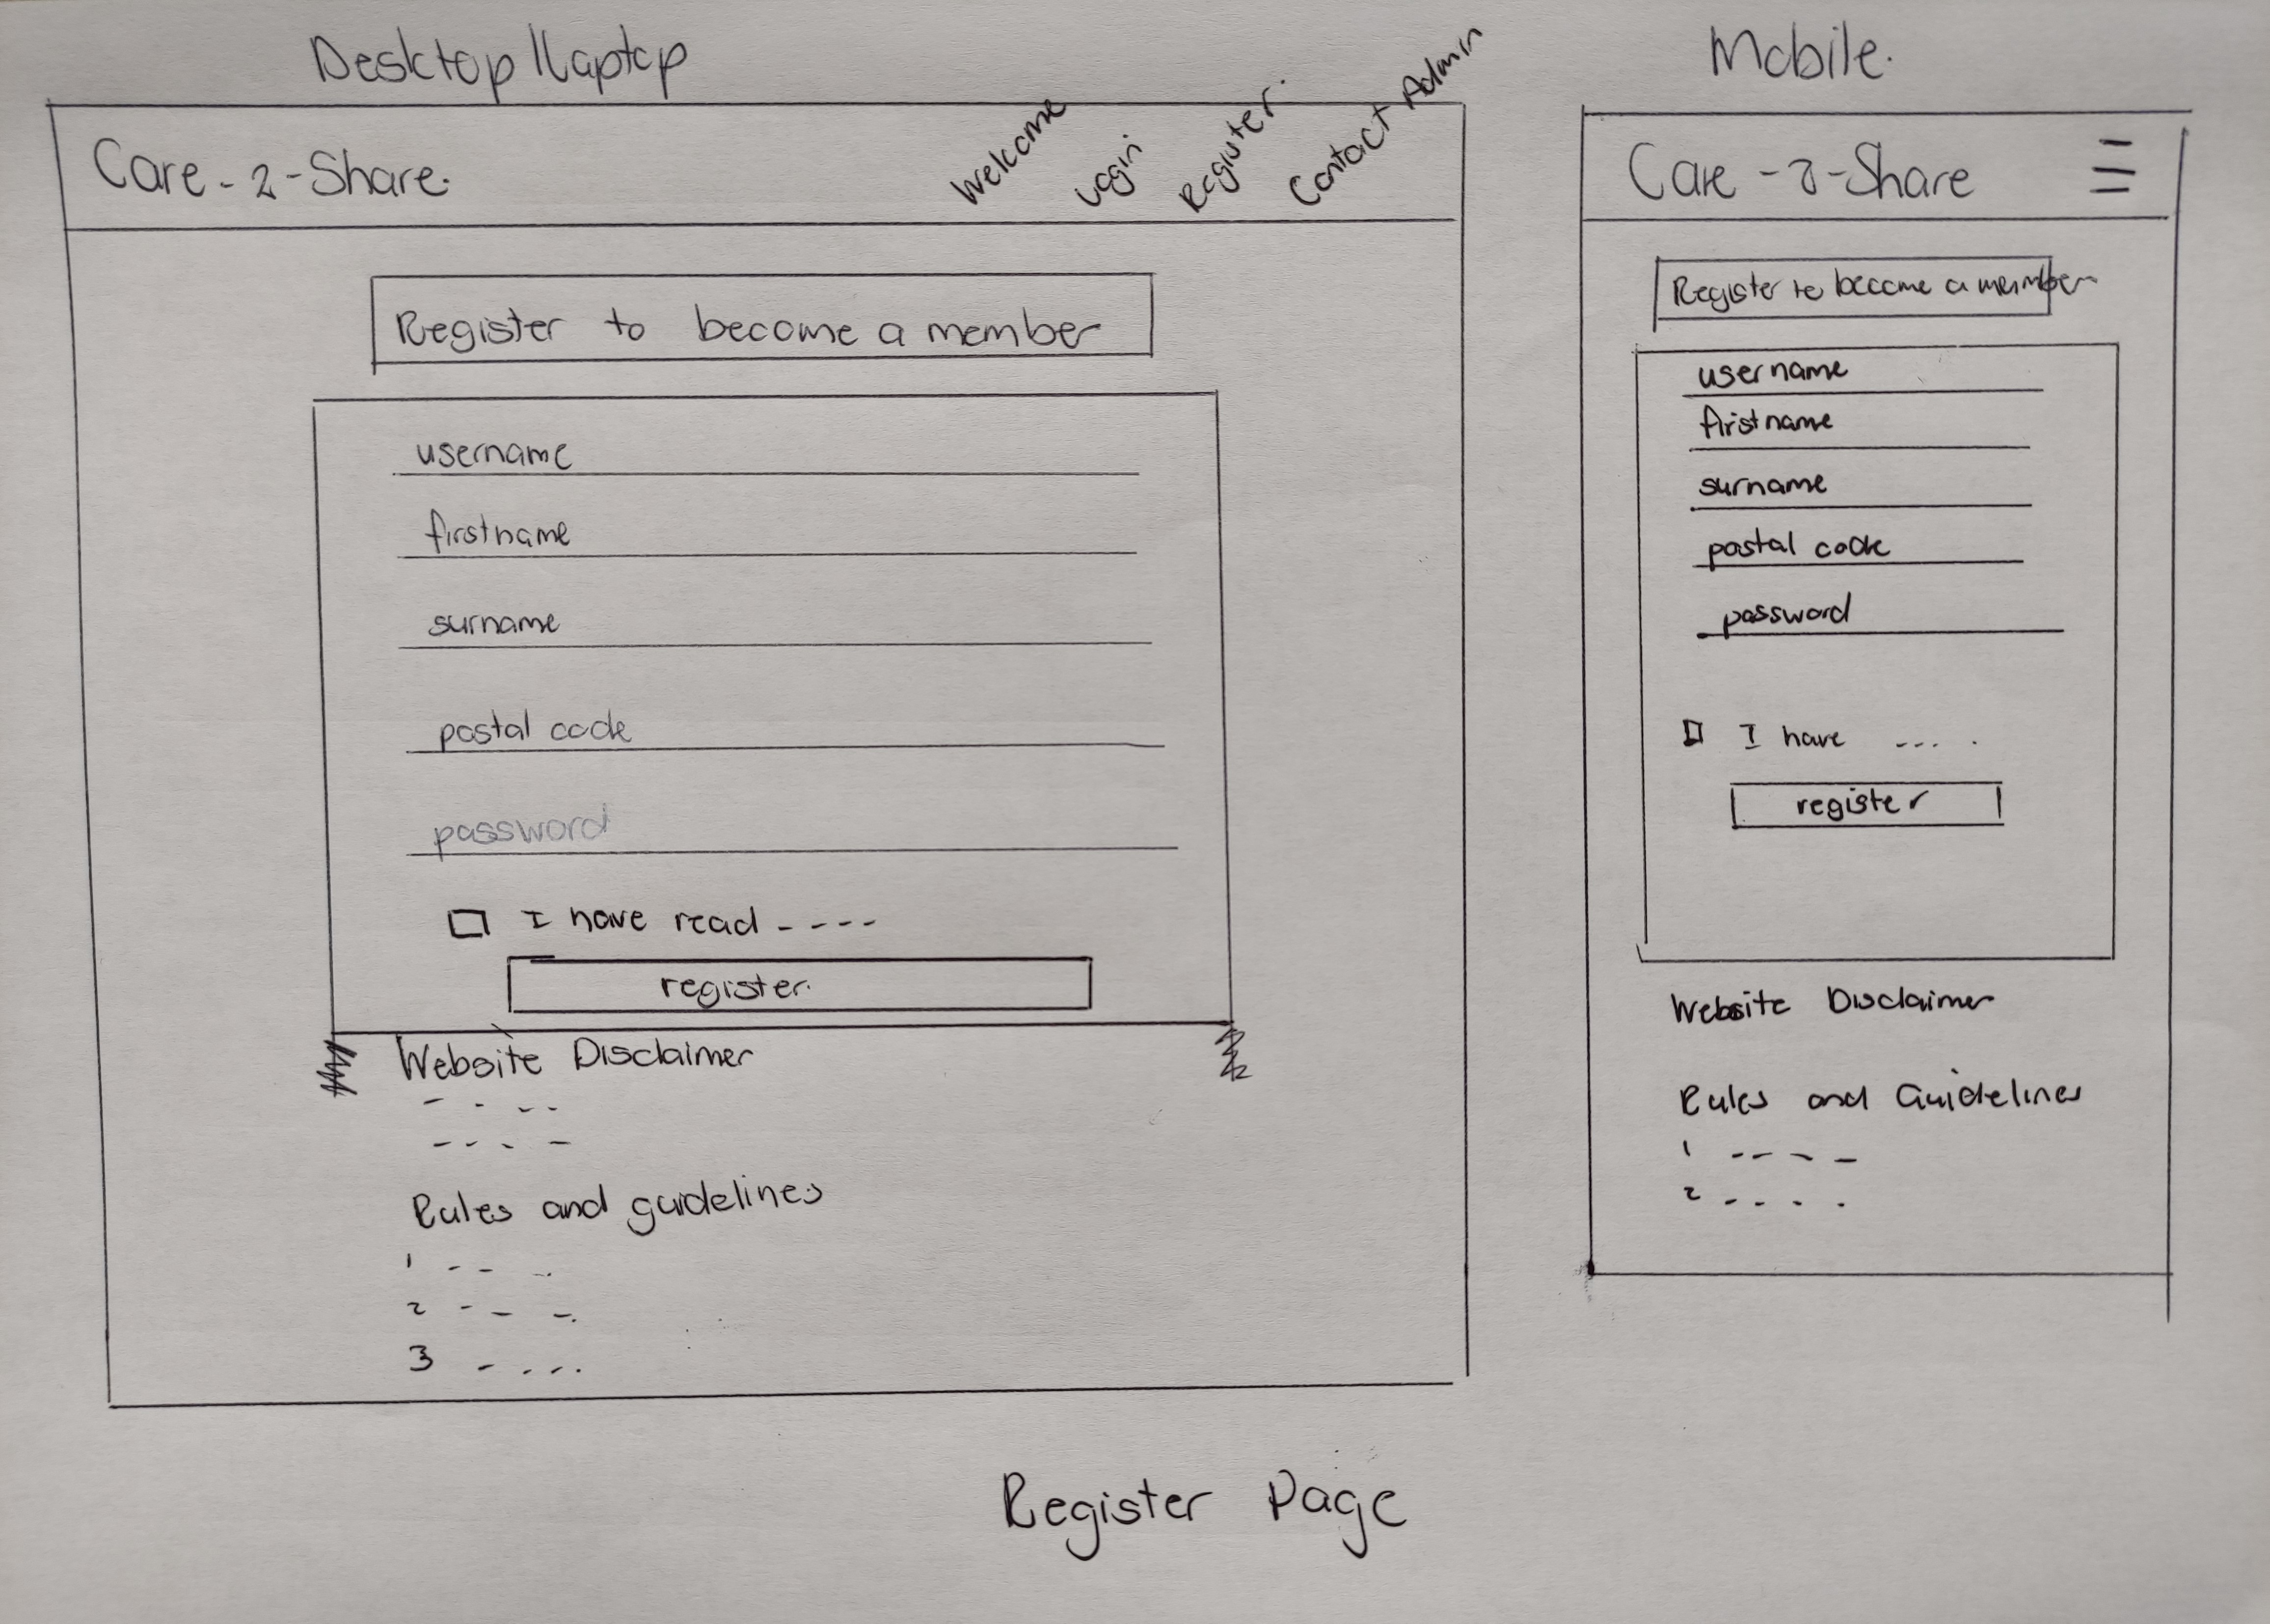 Desktop/Laptop
Care-2-Share.
Welcome
Login
Register.
Contact Admin
Register to become a member
username
firstname
surname
postal code
password
I have read ----
register.
Website Disclaimer
Rules and guidelines
1
2
3
Mobile.
Care-2-Share
Register to become a member
username
firstname
surname
postal code
password
I have ....
register
Website Disclaimer
Rules and Guidelines
1
2
Register Page